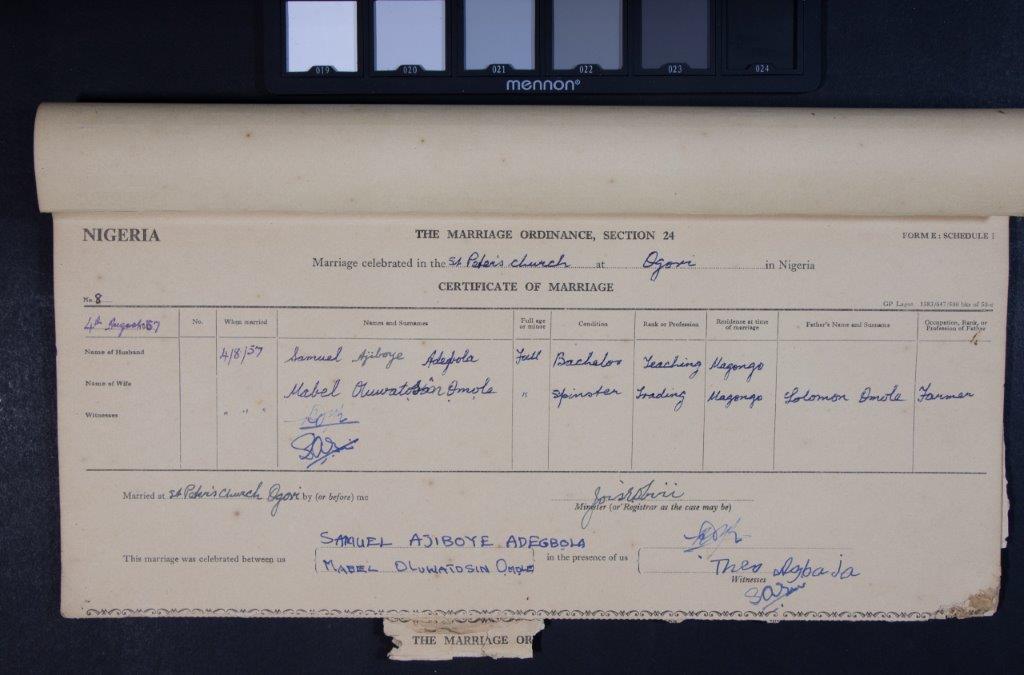 019 020 021 022 023 024
mennon®
NIGERIA THE MARRIAGE ORDINANCE, SECTION 24 FORM E : SCHEDULE
Marriage celebrated in the St Peter's church at Ogori in Nigeria
CERTIFICATE OF MARRIAGE
No. 8 GP Lagos
4th August 57 No. When married Names and Surnames Full age or minor Condition Rank or Profession Residence at time of marriage Father's Name and Surname Occupation, Rank, or Profession of Father
Name of Husband 4/8/57 Samuel Ajiboye Adegbola Full Bachelor Teaching Magongo
Name of Wife Mabel Oluwatosin Omole " Spinster Trading Magongo Solomon Omole Farmer
Witnesses " " "
Married at St Peter's Church Ogori by (or before) me
Minister (or Registrar as the case may be)
This marriage was celebrated between us SAMUEL AJIBOYE ADEGBOLA in the presence of us
MABEL OLUWATOSIN OMOLE Theo Agbaja
Witnesses
THE MARRIAGE OR